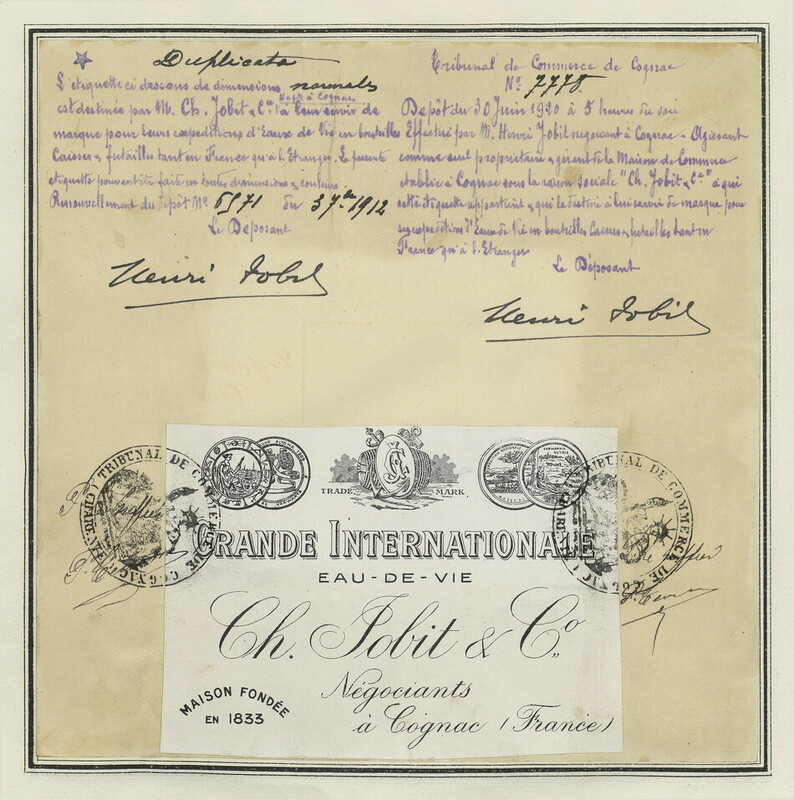 Duplicata
L'étiquette ci dessous de dimensions normales
est destinée par M. Ch. Jobit & Cie Négts à Cognac à leur servir de
marque pour leurs expéditions d'Eaux de Vie en bouteilles
Caisses & futailles tant en France qu'à l'Etranger. La présente
étiquette pouvant être faite en toutes dimensions & couleurs.
Renouvellement du Dépôt No 6571 du 3 7bre 1912
Le Déposant
Henri Jobit
Tribunal de Commerce de Cognac
No 7778
Dépôt du 30 Juin 1920 à 5 heures du soir
Effectué par M. Henri Jobit négociant à Cognac - Agissant
comme seul propriétaire & gérant de la Maison de Commerce
établie à Cognac sous la raison sociale "Ch. Jobit & Cie" à qui
cette étiquette appartient & qui la destine à lui servir de marque pour
ses expéditions d'Eaux de Vie en bouteilles Caisses & futailles tant en
France qu'à l'Etranger
Le Déposant
Henri Jobit
TRIBUNAL DE COMMERCE DE COGNAC
TRADE MARK
TRIBUNAL DE COMMERCE DE COGNAC
GRANDE INTERNATIONALE
EAU-DE-VIE
Ch. Jobit & Co.
MAISON FONDÉE
EN 1833
Négociants
à Cognac (France)